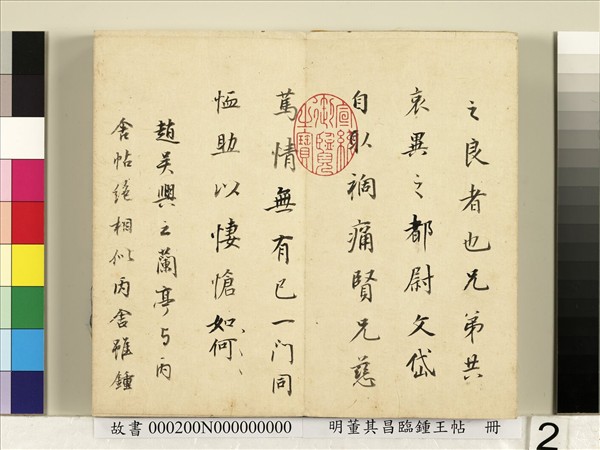 之良者也兄弟共
哀異之都尉文岱
自取禍痛賢兄慈
篤情無有已一門同
恤助以悽愴如何〻
趙吳興之蘭亭與丙
舍帖絕相似丙舍雖鍾
宣統御覽之寶
故書 000200N000000000 明董其昌臨鍾王帖 冊
2